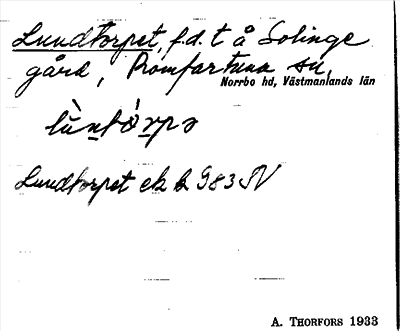 Lundtorpet, f.d. t å Solinge
gård, Romfartuna sn,
Norrbo hd, Västmanlands län
lùntòrpə
Lundtorpet ek b 983 SV
A. THORFORS 1933